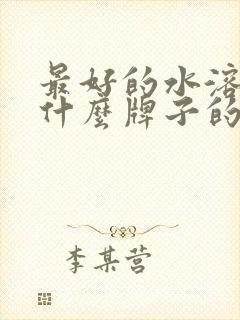 最好的水溶
什麼牌子的
李某营